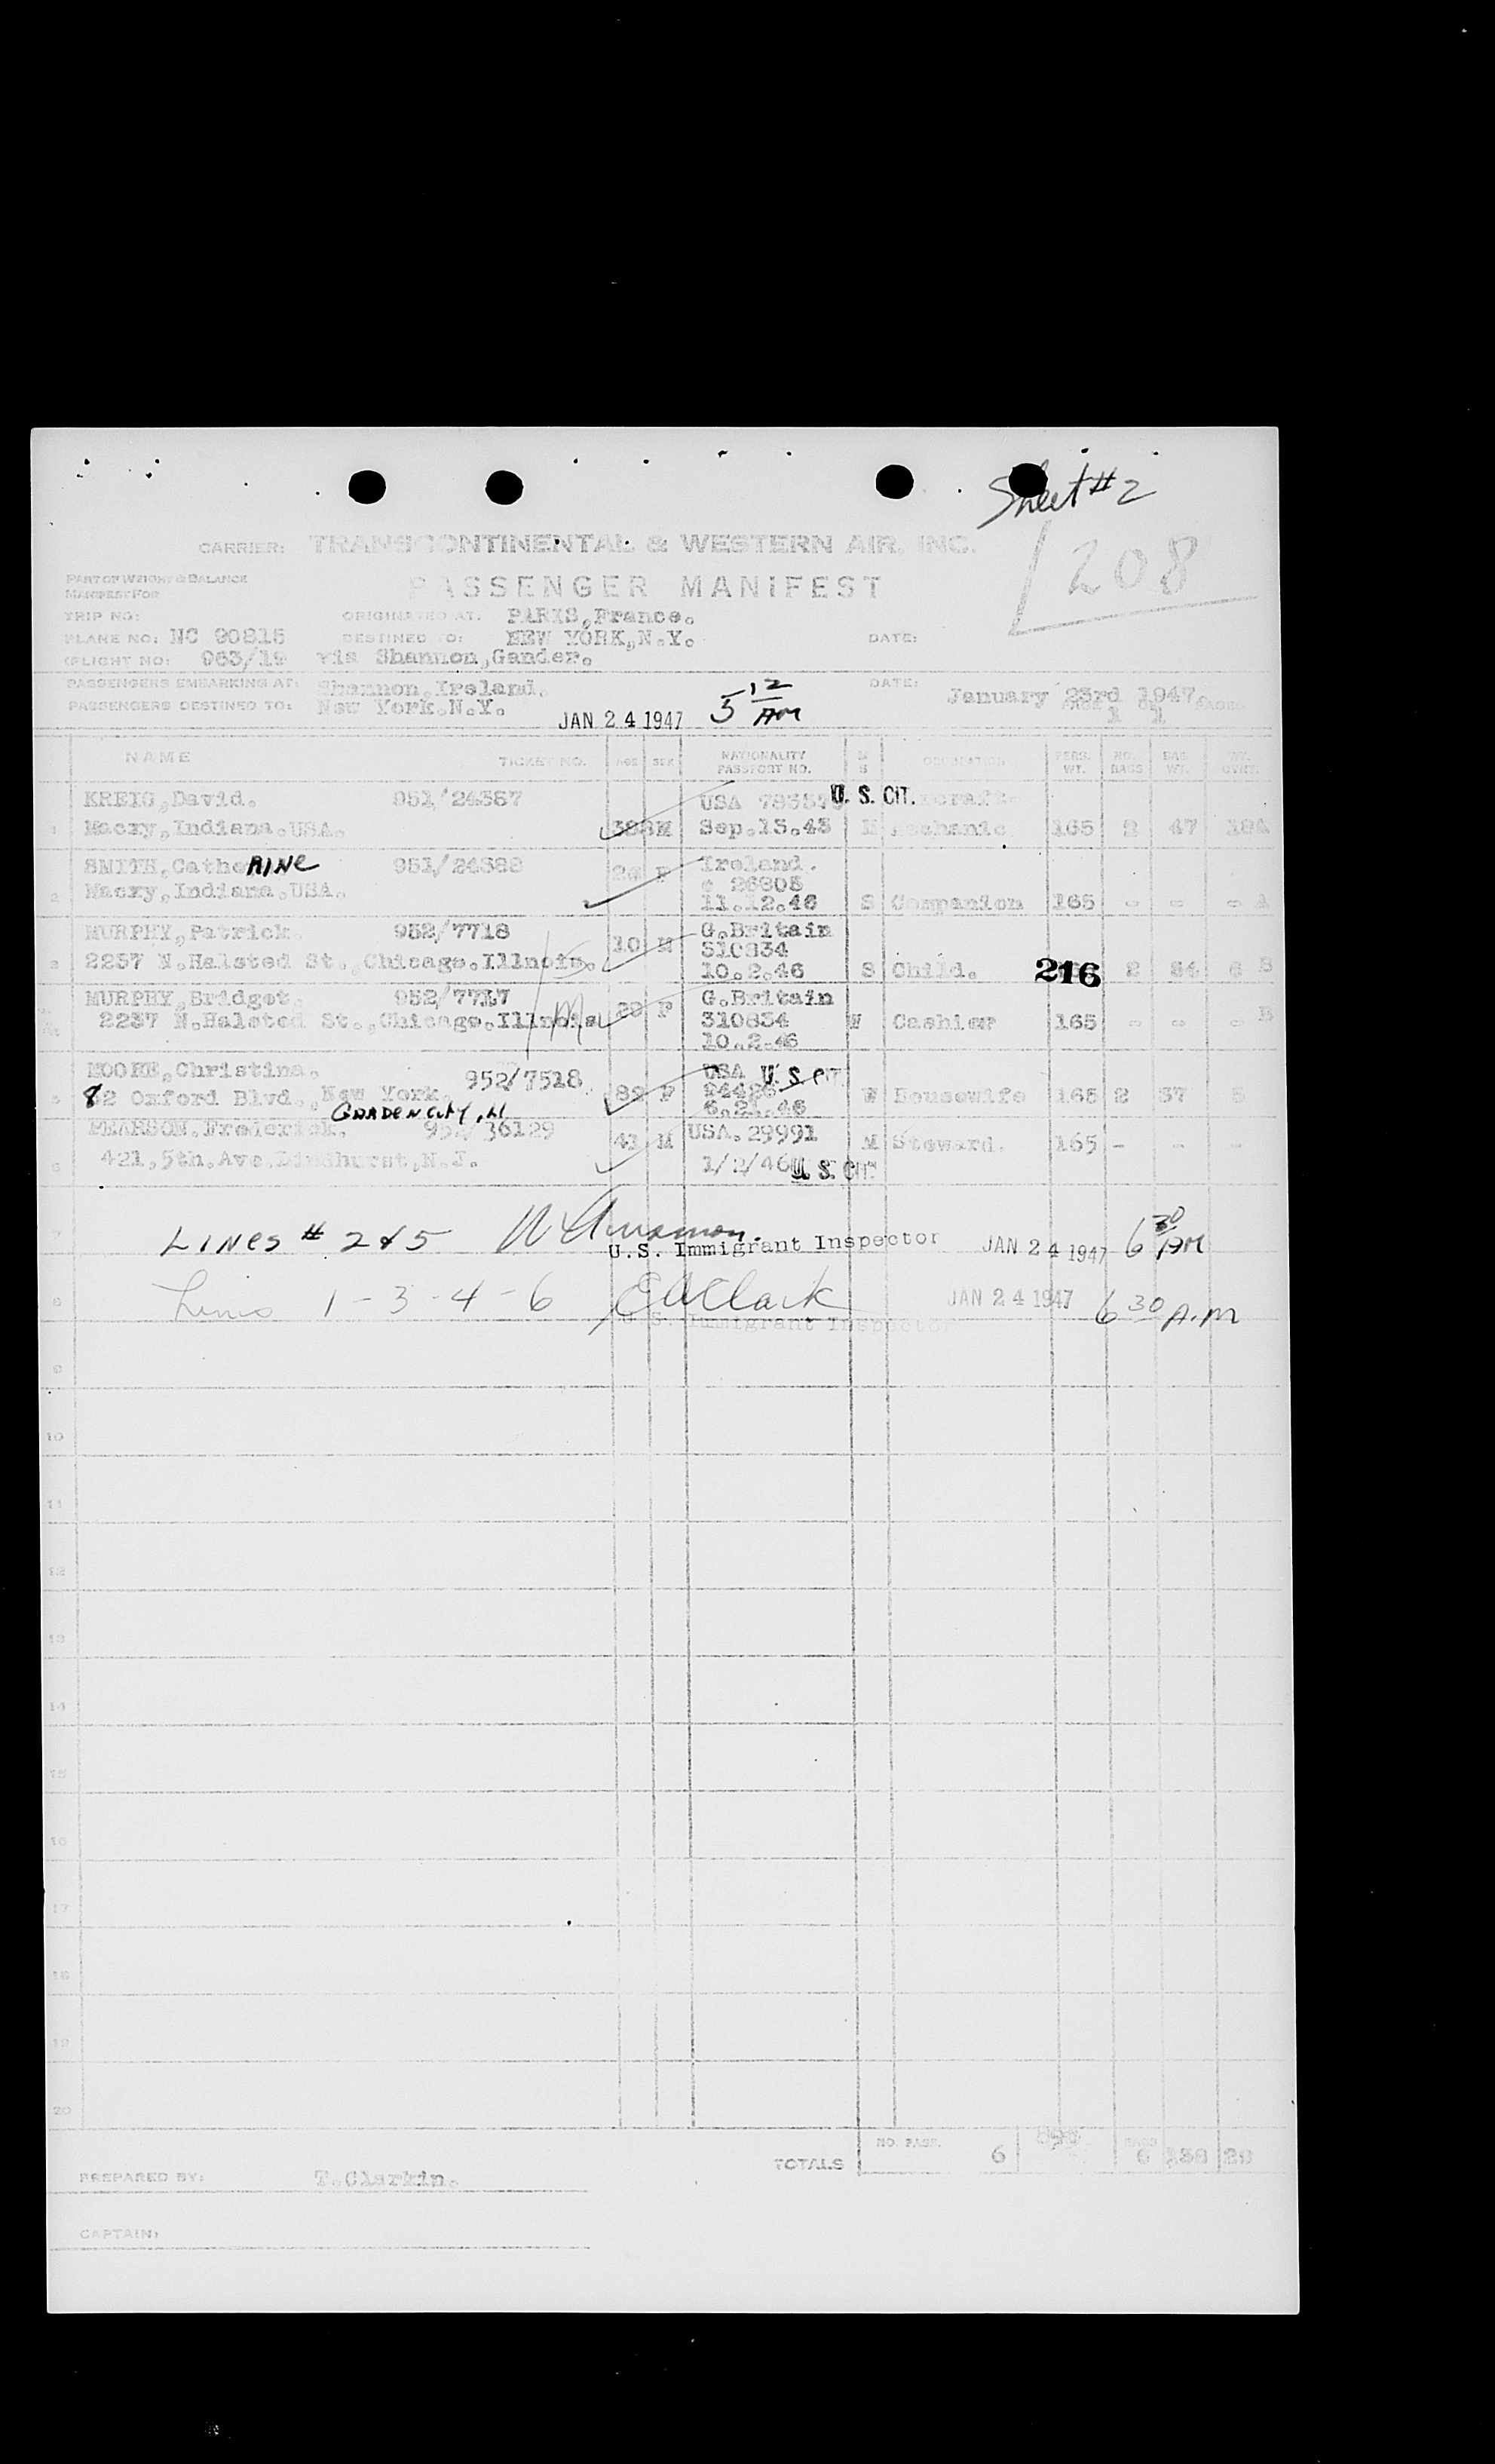 Sheet #2
CARRIER: TRANSCONTINENTAL & WESTERN AIR, INC.
208
PART OF WEIGHT & BALANCE
MANIFEST FOR
PASSENGER MANIFEST
TRIP NO: ORIGINATED AT: PARIS,France.
PLANE NO: NC 90815 DESTINED TO: NEW YORK,N.Y. DATE:
(FLIGHT NO: 963/19 via Shannon,Gander.
PASSENGERS EMBARKING AT: Shannon,Ireland. DATE: January 23rd 1947.
PASSENGERS DESTINED TO: New York.N.Y. JAN 24 1947 5 12 AM PAGE 1 OF 1 PAGES
NAME TICKET NO. AGE SEX NATIONALITY PASSPORT NO. M S OCCUPATION PERS. WT. NO. BAGS BAG. WT.
KREIG,David. 951/24387 USA U. S. CIT.
1 Macxy,Indiana.USA. M Sep.13.45 M Mechanic 165 2 47
SMITH,CatheRINE 951/24388 26 F Ireland.
26805
2 Macxy,Indiana.USA. 11.12.46 S Companion 165 - - - A
MURPHY,Patrick. 952/7718 10 M G.Britain
310834
3 2237 N.Halsted St.,Chicago.Illnois. 10.2.46 S Child. 216 2 54 6 B
MURPHY,Bridget. 952/7717 F G.Britain
2237 N.Halsted St.,Chicago.Illnois 310834 W Cashier 165 - - - B
10.2.46
MOORE,Christina. 952/7518 USA U. S. CIT.
5 82 Oxford Blvd.,New York. F W Housewife 165 2 37 5
GARDEN CITY, LI 6.21.46
PEARSON.Frederick. 952/36129 41 M USA.29991 M Steward. 165 - - -
6 421,5th.Ave.Lindhurst,N.J. 1/2/46 U. S. CIT.
7 LINES # 2 & 5 U.S. Immigrant Inspector JAN 24 1947 6 30 AM
8 Lines 1-3-4-6 E A Clark JAN 24 1947 6 30 A.M
U.S. Immigrant Inspector
9
10
11
12
13
14
15
16
17
18
19
20
TOTALS NO. PASS. 6 BAGS 6 138 20
PREPARED BY: T.Clarkin.
CAPTAIN: